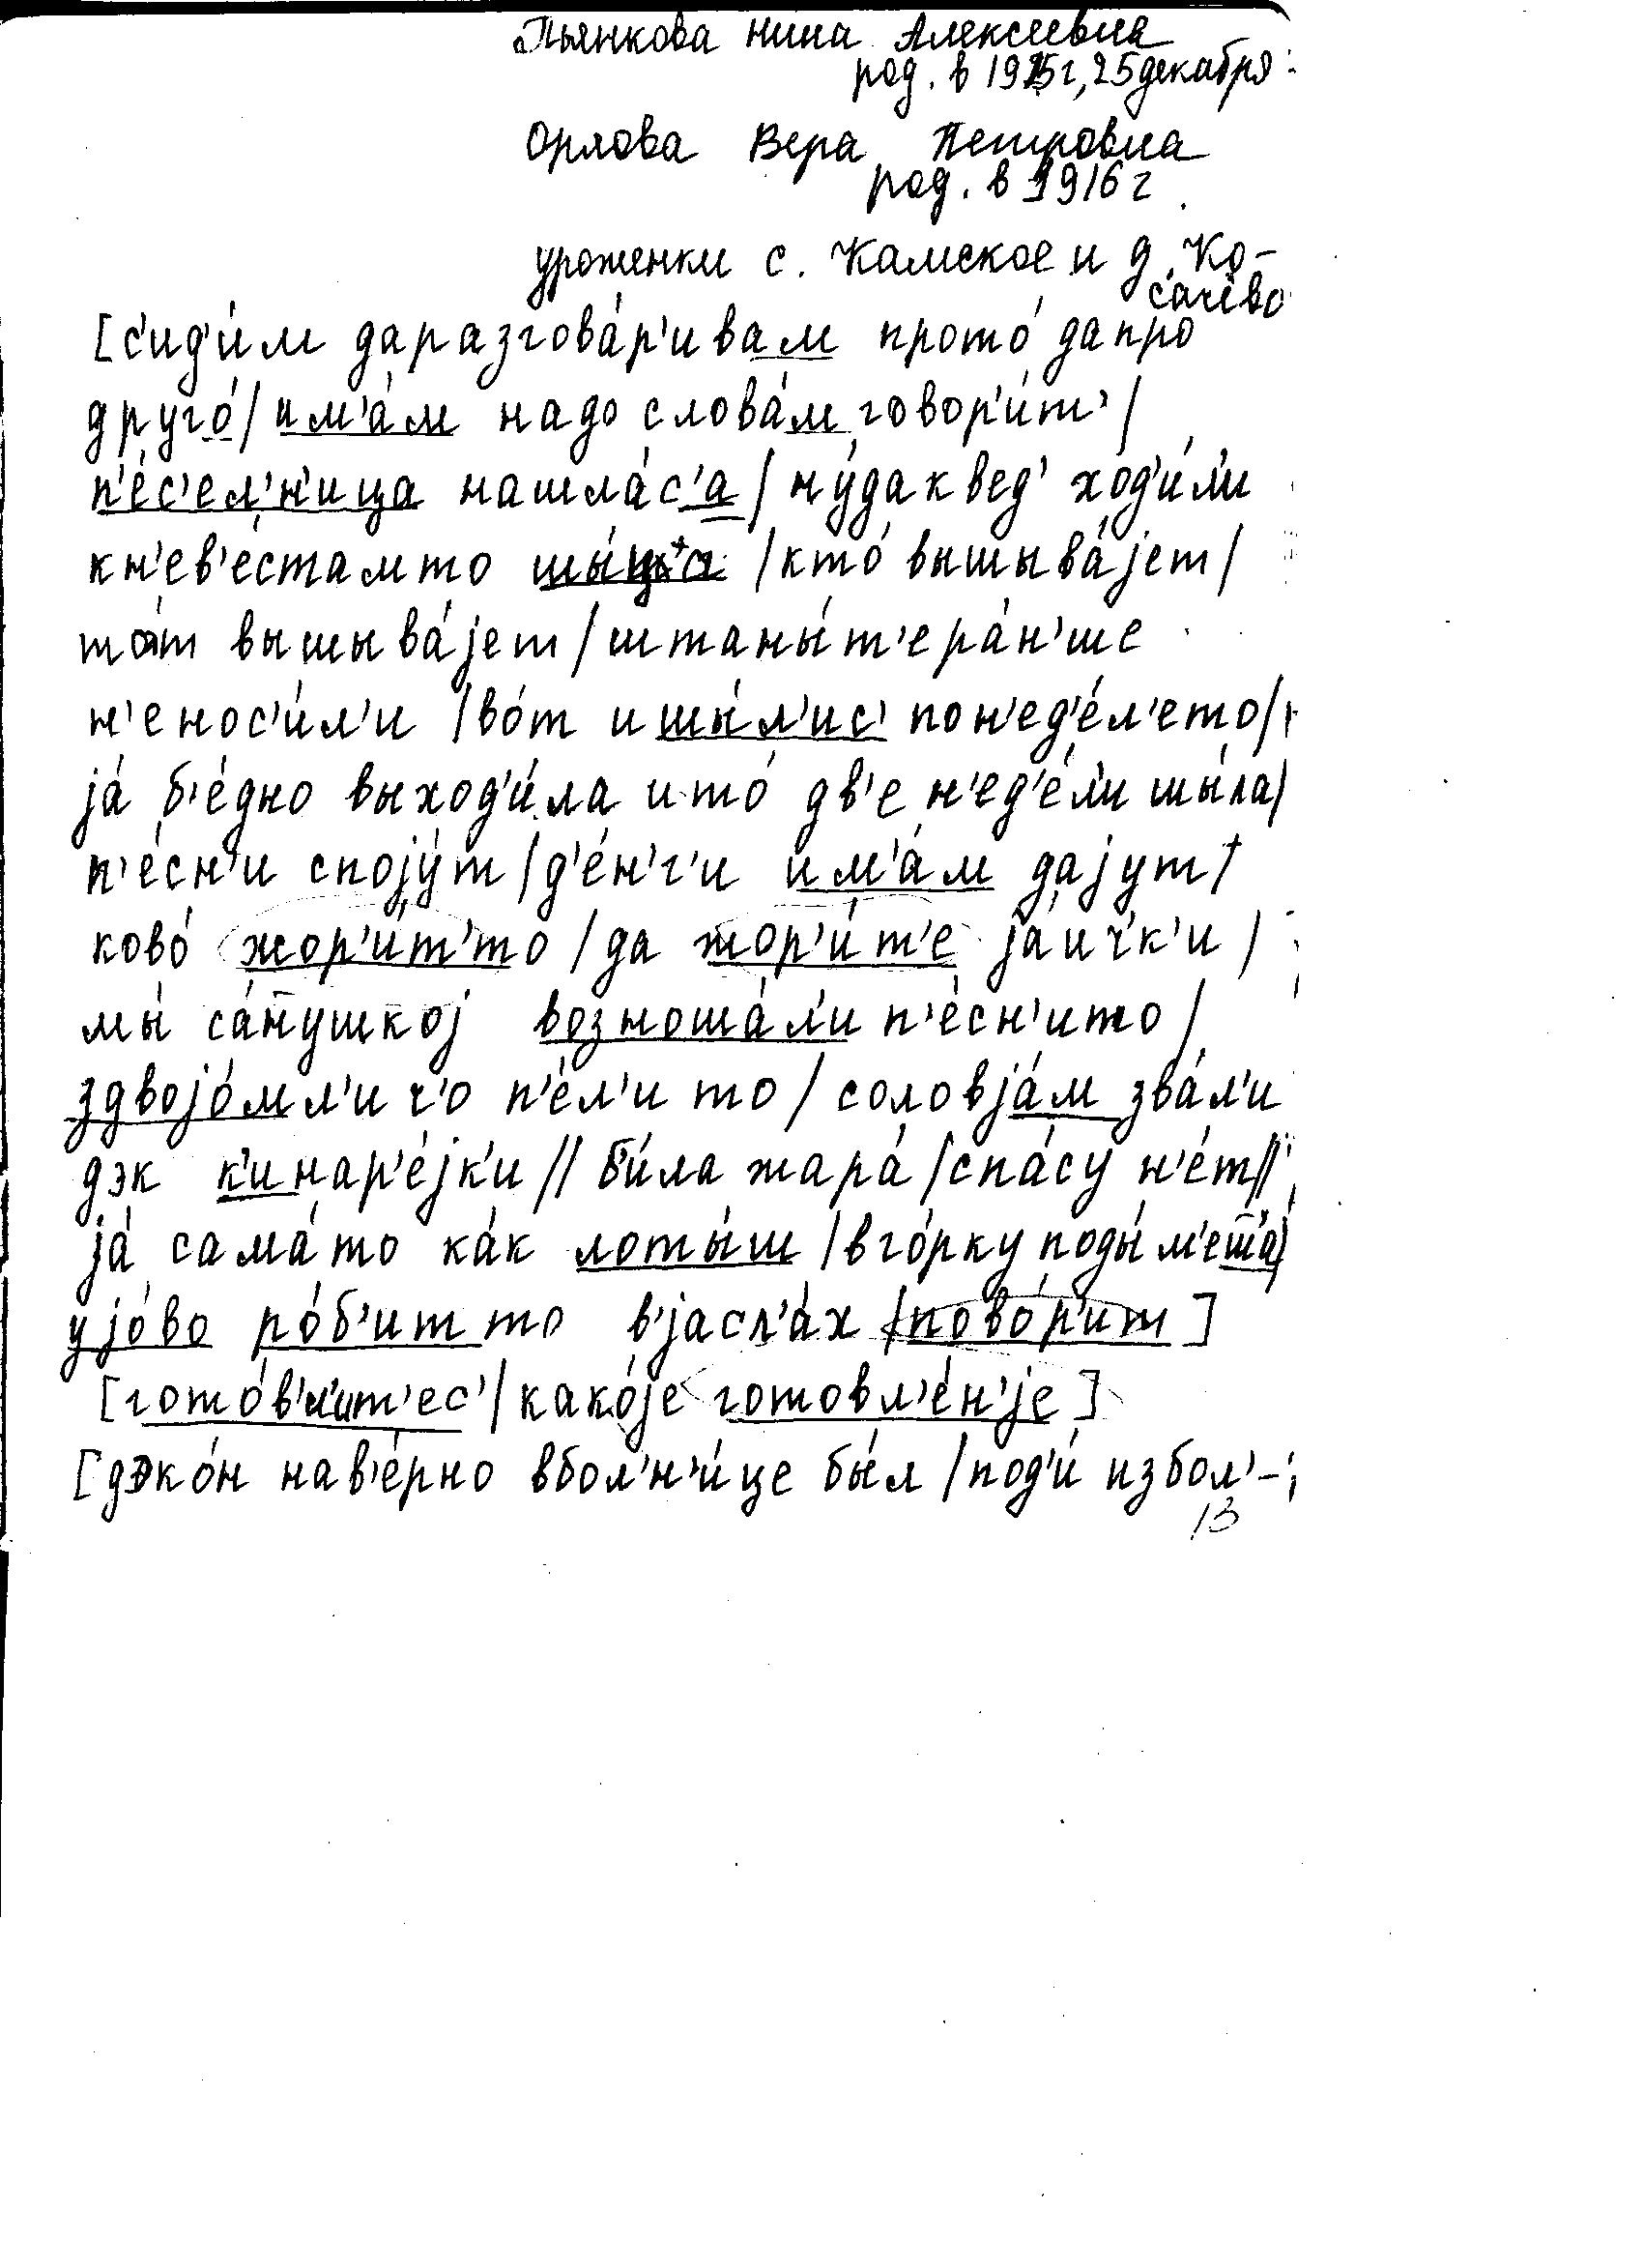 Пьянкова Нина Алексеевна
род. в 1925г, 25 декабря
Орлова Вера Петровна
род. в 1916 г.
уроженки с. Камское и д. Ко-
сачёво
[с'ид'и́м даразгова́р'ивам прото́ дапро
друго́/им'а́м надо слова́м говор'и́т'/
п'е́с'ел'н'ица нашла́с'а/ну́дак вед' ход'и́л'и
кн'ев'е́стамто /кто́ вышыва́jет/
то́т вышыва́jет/штаны́т'ера́н'ше
н'енос'и́л'и /во́т ишы́л'ис' пон'ед'е́л'ето/
jа́ б'е́дно выход'и́ла ито́ дв'е н'ед'е́л'и шы́ла/
п'е́сн'и споjу́т/д'е́н'г'и им'а́м даjут/
ково́ жор'и́т'то/да жор'и́т'е jаи́ч'к'и/
мы́ са́нушкоj возноша́л'и п'е́сн'ито/
здвоjо́мл'и ч'о п'е́л'и то/соловjа́м зва́л'и
дэк к'инар'е́jк'и// бы́ла жара́/спа́су н'е́т//
jа́ сама́то ка́к лоты́ш/вго́рку поды́м'ет'а/
уjо́во ро́б'ит то в'jасл'а́х /пово́р'ит]
[гото́в'л'ит'ес'/како́jе готовл'е́н'jе]
[дэко́н нав'е́рно вбол'н'и́це бы́л/под'и́ избол'-
13